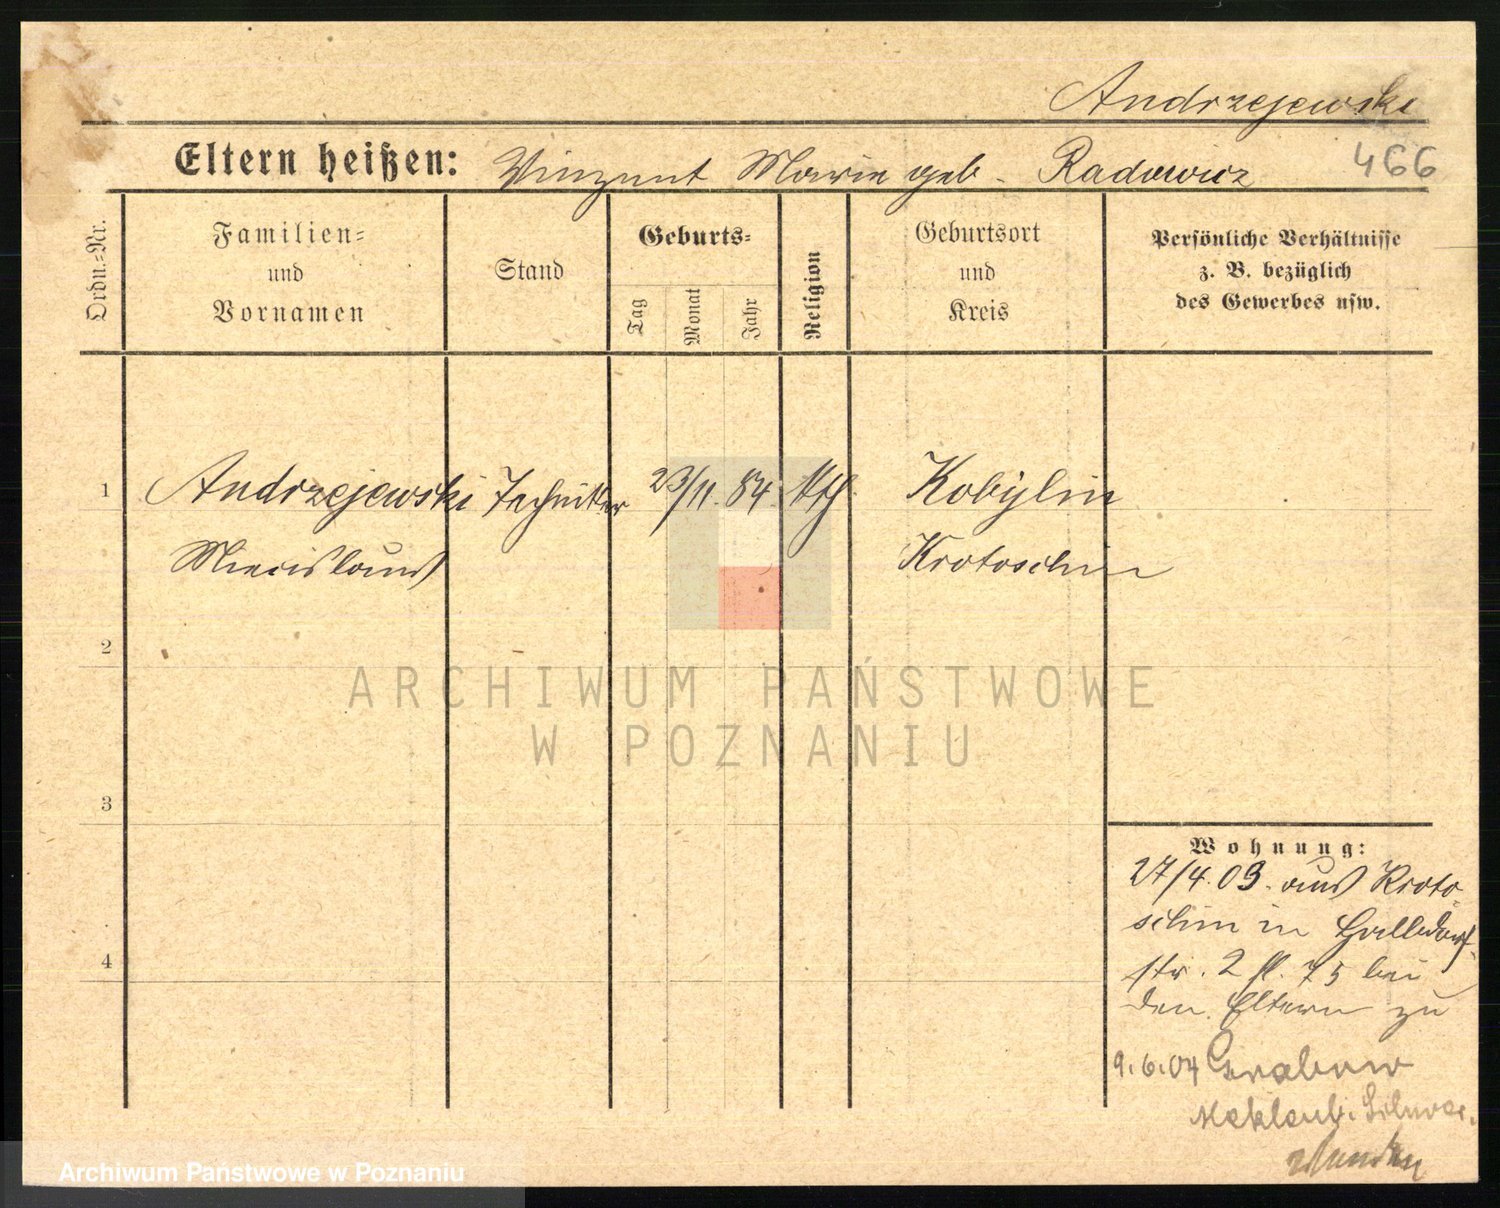 Andrzejewski
Eltern heißen: Vinzent Marie geb. Radowicz
466
Ordn.=Nr.
Familien=
und
Vornamen
Stand
Geburts=
Tag
Monat
Jahr
Religion
Geburtsort
und
Kreis
Persönliche Verhältnisse
z. B. bezüglich
des Gewerbes usw.
1 Andrzejewski Techniker 23/11. 84. kth. Kobylin
Miecislaus Krotoschin
2
ARCHIWUM PAŃSTWOWE
W POZNANIU
3
4
Wohnung:
27/4.03. aus Kroto
schin in
str. 2 75 bei
den Eltern zu
9.6.04 Grabow
Meklenb.
Archiwum Panstwowe w Poznaniu